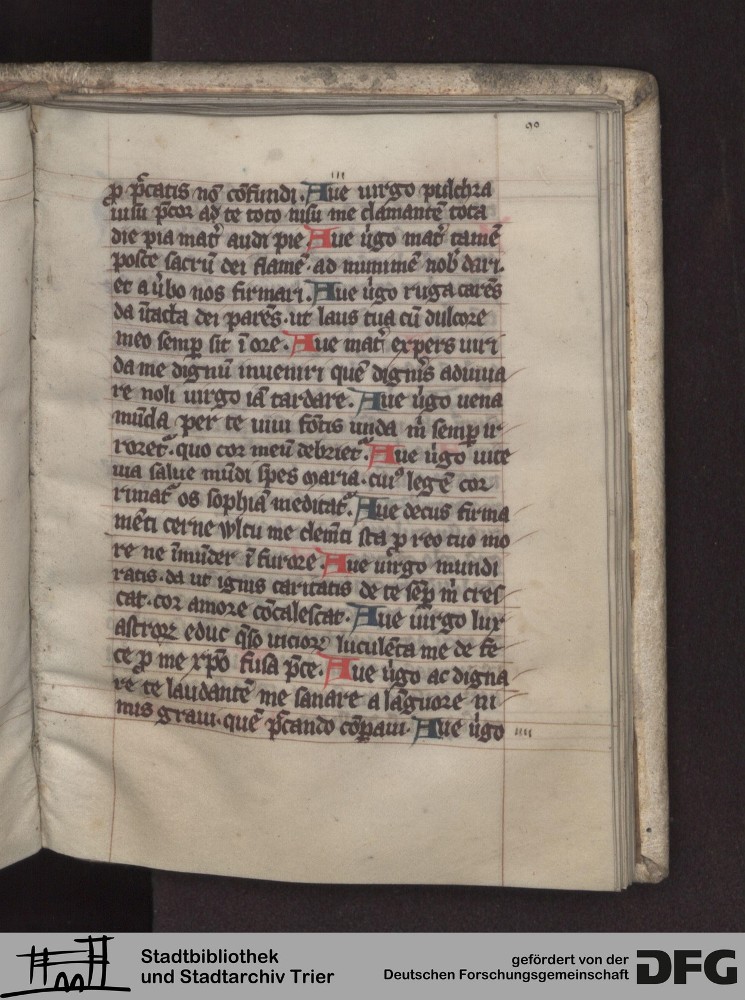 90
ꝑ pc̄catis nō cōfundi. Aue uirgo pulchra
uisu p̄cor ad te toto nisu me clamantē tota
die pia mat̄ audi pie. Aue ūgo mat̄ tamē
poscē sacrū dei flamē · ad numinē nob̄ dari.
et a ūbo nos firmari. Aue ūgo ruga carēs
da ītacta dei parēs · ut laus tua cū dulcore
meo semꝑ sit ī ore · Aue mat̄ expers uiri
da me dignū inueniri quē dignis adiuua
re noli uirgo iā tardare. Aue ūgo uena
mūda per te uiui fōtis unda m̄ semꝑ ir
roret · quo cor meū debriet · Aue ūgo uite
uia salue mūdi spes maria · cuiꝰ legē cor
rimat̄ os sophiā meditat̄. Aue decus firma
mēti cerne wltu me clemēti sta ꝓ reo tuo mo
re ne īmūder ī furore. Aue uirgo mundi
ratis · da ut ignis caritatis de te sēꝑ m̄ cres
cat · cor amore cōcalescat · Aue uirgo lux
astroꝝ educ q̄so uicioꝝ luculēta me de fe
ce ꝓ me xp̄o fusa p̄ce. Aue ūgo ac digna
re te laudantē me sanare a lāguore ni
mis graui · quē pc̄cando cōꝑaui · Aue ūgo
Stadtbibliothek
und Stadtarchiv Trier
gefördert von der
Deutschen Forschungsgemeinschaft
DFG